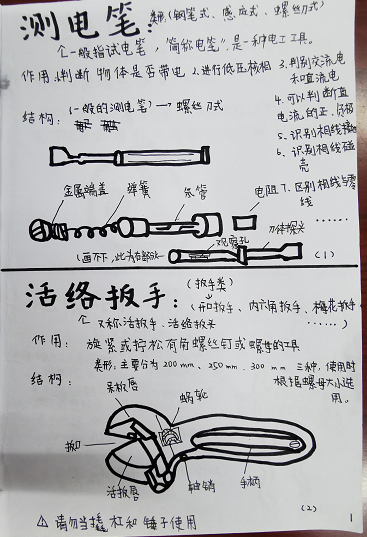 测电笔: 类形(钢笔式、感应式、螺丝刀式)
↑一般指试电笔，简称电笔"是一种电工工具。
作用：1.判断物体是否带电 2.进行低压核相 3.判别交流电和直流电
4.可以判断直流电的正、负极
5.识别相线接地
6.识别相线碰壳
7.区别相线与零线
......
结构：(一般的测电笔)→螺丝刀式
金属端盖
弹簧
氖管
电阻
刀体探头
观察孔
(画不下，此为右部分)
(1)
活络扳手: (扳手类)
(开口扳手、内六角扳手、梅花扳手......)
↑又称活扳手、活络扳头
作用：旋紧或拧松有角螺丝钉或螺母的工具
类形，主要分为200mm、250mm、300mm三种，使用时根据螺母大小选用。
结构：
呆板唇
蜗轮
扳口
活扳唇
轴销
手柄
(2)
△请勿当撬杠和锤子使用
1